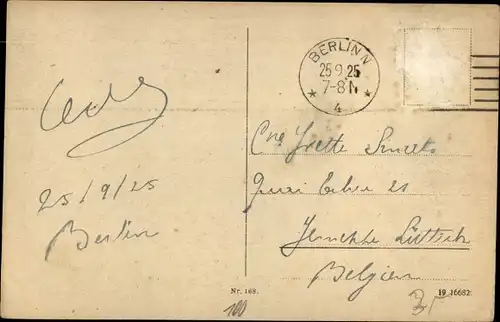 BERLIN N
25.9.25
7-8 N
* 4 *
25/9/25
Berlin
Yvette Smeets
Quai 21
Jemeppe Lüttich
Belgien
Nr. 168.
19 16682
100